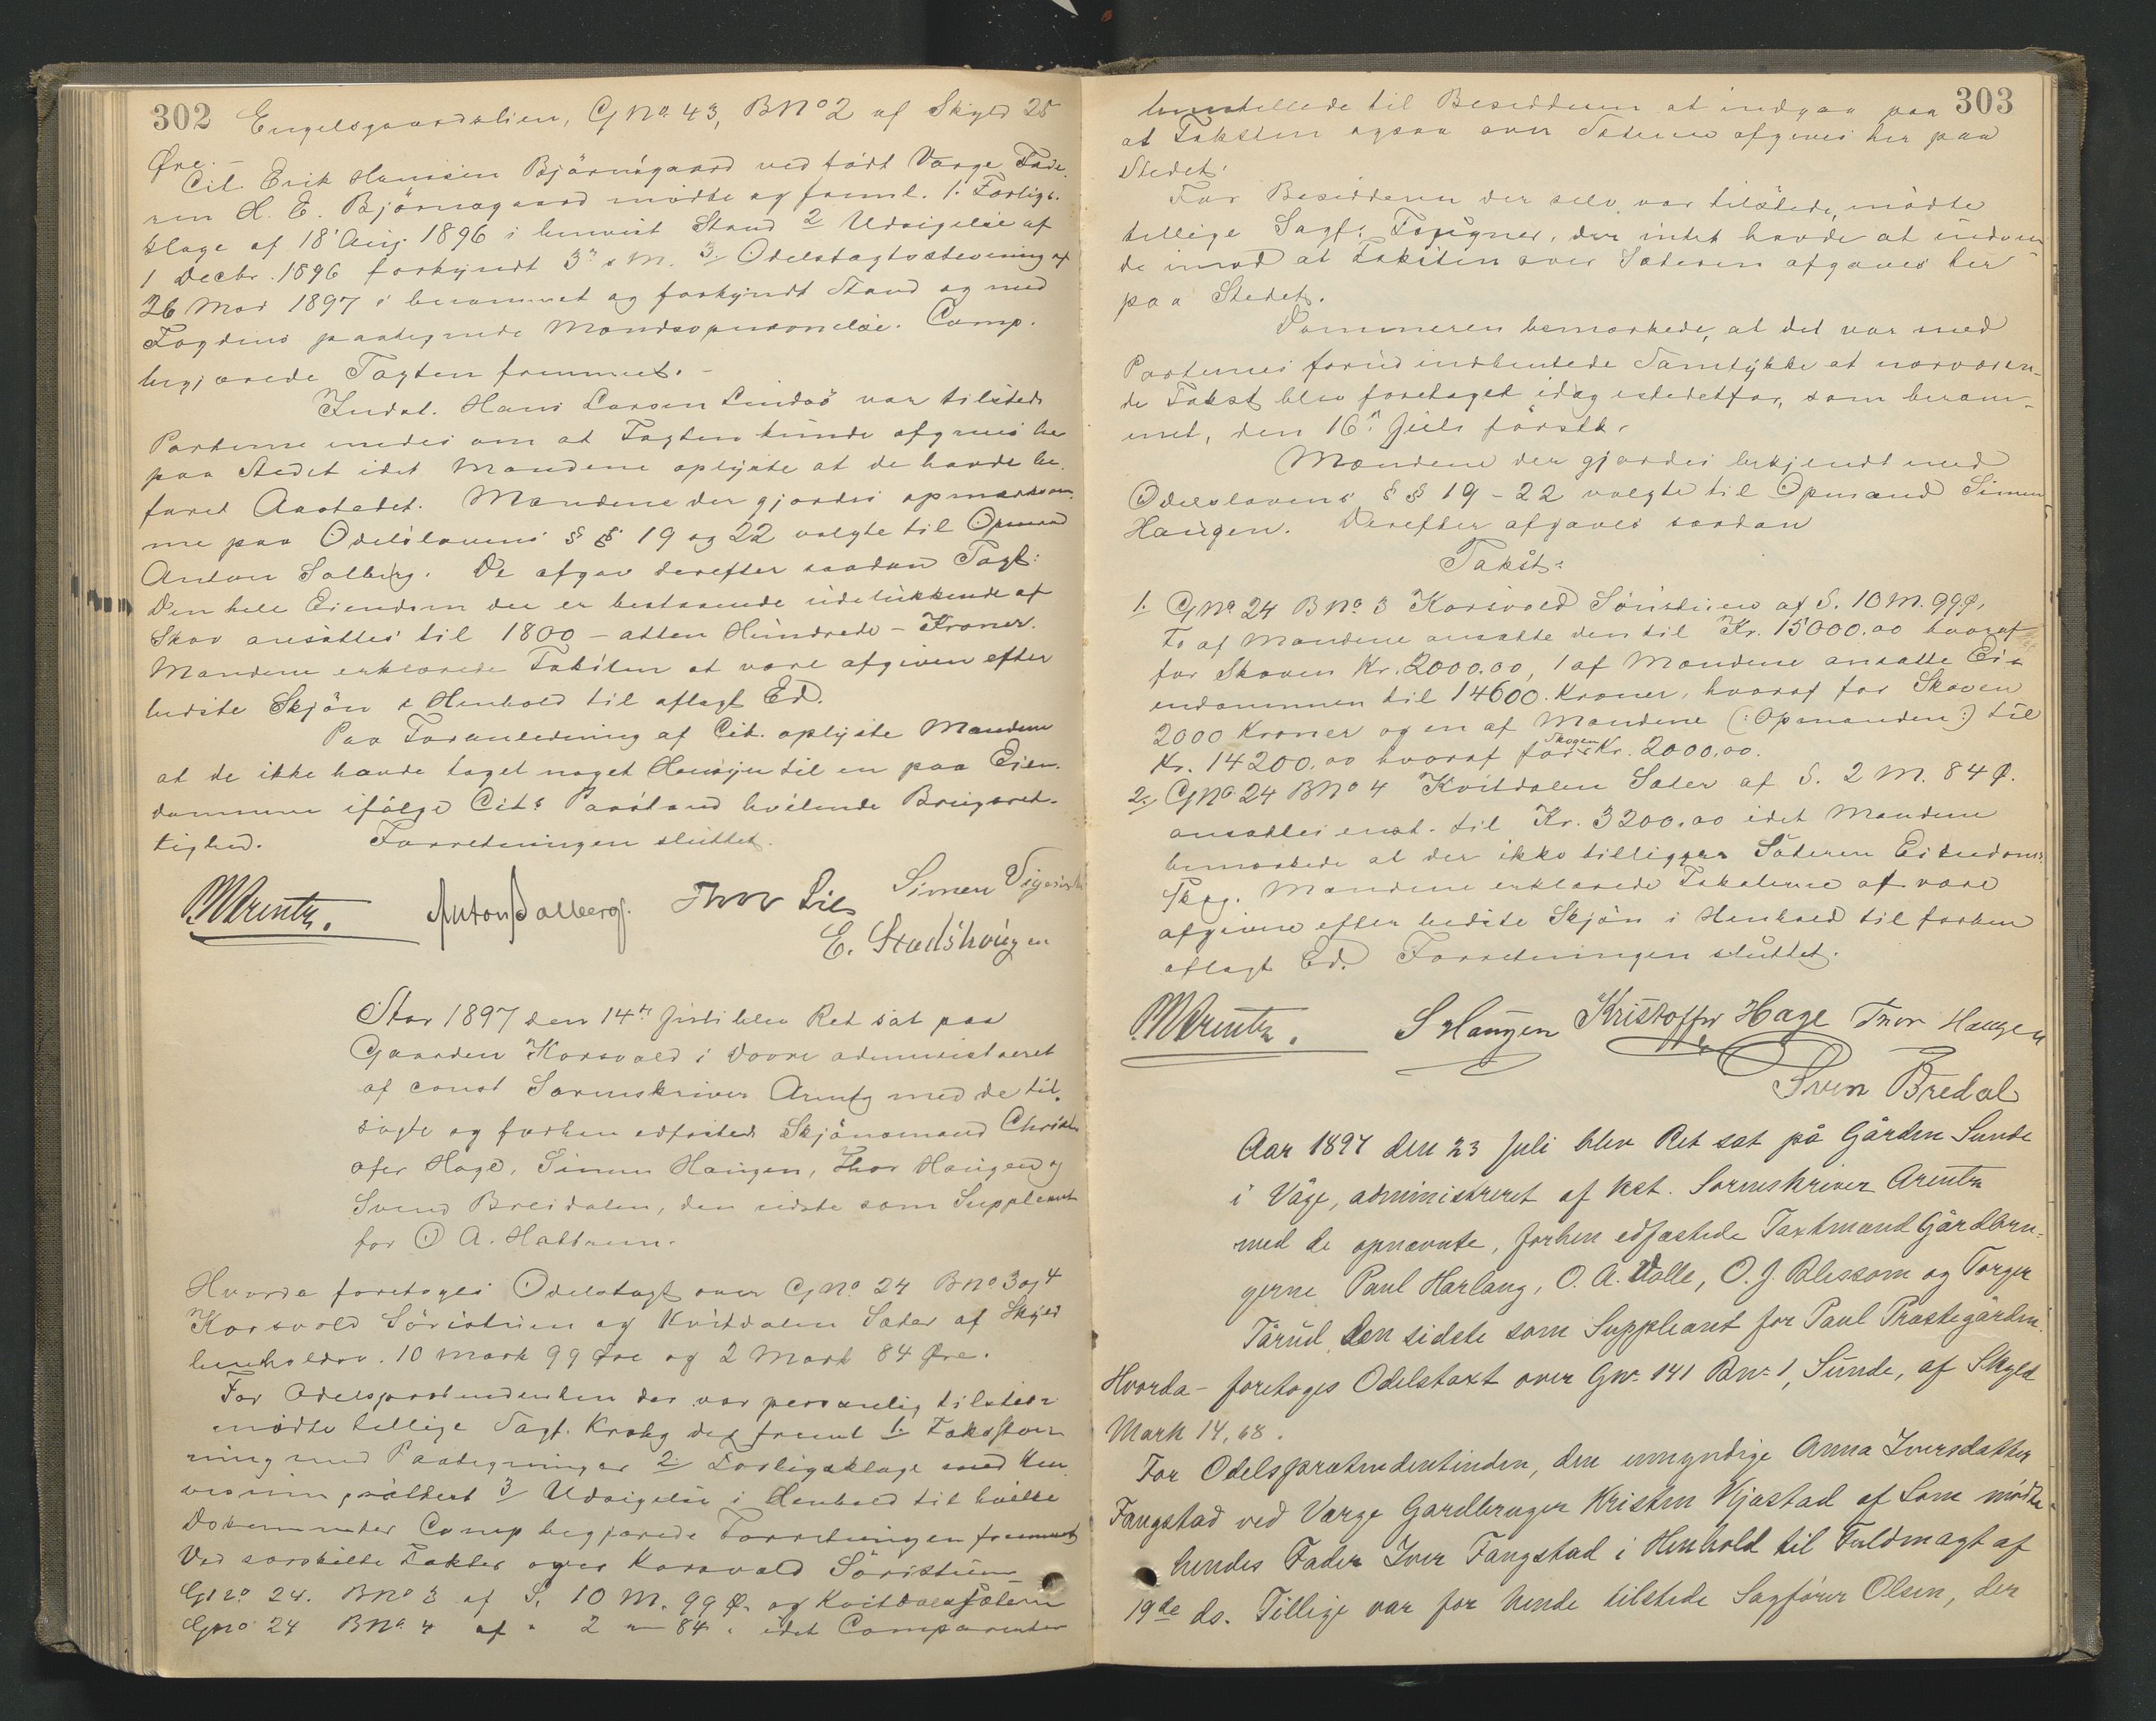 302
Engelsgaardslien, GNo. 43, BNo 2 af Skyld 25
Øre. -
Cit. Erik Hansen Bjørnsgaard ved født Værge Fade-
ren H. E. Bjørnsgaard mødte og freml. 1. Forligs-
klage af 18 Aug. 1896 i henvist Stand 2 Udsigelse af
1 Decbr. 1896 forkyndt 3' s. M. 3. Odelstagtstevning af
26 Mai 1897 i berammet og forkyndt Stand og med
Fogdens paategnede Mandsopnævnelse. Comp.
begjærede Tagten fremmet. -
Indst. Hans Larsen Lindsø var tilstede
Parterne enedes om at Tagten kunde afgives her
paa Stedet idet Mændene oplyste at de havde be-
faret Aastedet. Mændene der gjordes opmærksom-
me paa Odelslovens §§ 19 og 22 valgte til Opmand
Anton Solberg. De afgav derefter saadan Tagt:
Den hele Eiendom der er bestaaende udelukkende af
Skov ansattes til 1800 - atten Hundrede - Kroner.
Mændene erklærede Taksten at være afgiven efter
bedste Skjøn i Henhold til aflagt Ed.
Paa Foranledning af Cit. oplyste Mændene
at de ikke havde taget noget Hensyn til en paa Eien-
dommen ifølge Cits Paastand hvilende Brugsret-
tighed. Forretningen sluttet.
MArentz. Anton Solberg. Thor Lie Simen
E. Stadshaugen
Aar 1897 den 14de Juli blev Ret sat paa
Gaarden Korsvold i Dovre administreret
af const Sorenskriver Arentz med de til-
sagte og forhen edfæstede Skjønsmænd Christ-
ofer Hage, Simen Haugen, Thor Haugen og
Svend Breidalen, den sidste som Suppleant
for O A. Hattrem.
Hvorda foretoges Odelstagt over GNo. 24 BNo 3 og 4
Korsvold Søristuen og Kvitdalen Sæter af Skyld
henholdsv. 10 Mark 99 Øre og 2 Mark 84 Øre.
For Odelsprætendenten der var personlig tilstede
mødte tillige Sagf. Krohg der freml 1. Takststev-
ning med Paategninger 2. Forligsklage med Hen-
visning paaført 3/ Udsigelse i Henhold til hvilke
Dokumenter Comp begjærede Forretningen fremmet
Ved særskilte Takter over Korsvold Søristuen
GNo. 24. BNo 3 af S. 10 M. 99 Ø. og Kvitdalssæteren
GNo 24 BNo. 4 af " 2 " 84 " idet Comparenten
303
henstillede til Besidderen at indgaa paa
at Taksten ogsaa over Sæteren afgives her paa
Stedet.
For Besidderen der selv var tilstede, mødte
tillige Sagf. Fougner, der intet havde at indven-
de imod at Taksten over Sæteren afgaves her
paa Stedet.
Dommeren bemærkede, at det var med
Parternes forud indhentede Samtykke at nærværen-
de Takst blev foretaget idag istedetfor, som beram-
met, den 16de Juli førstk.
Mændene der gjordes bekjendt med
Odelslovens §§ 19 - 22 valgte til Opmand Simen
Haugen. Derefter afgaves saadan
Takst:
1. GNo 24 BNo. 3 Korsvold Søristuen af S. 10 M. 99 Ø,
To af Mændene ansatte den til Kr. 15000.00 hvoraf
for Skoven Kr. 2000.00, 1 af Mændene ansatte Ei-
endommen til 14600 Kroner, hvoraf for Skoven
2000 Kroner og en af Mændene (: Opmanden :) til
Kr. 14200.00 hvoraf for Skogen Kr. 2000.00.
2. GNo. 24 BNo 4 Kvitdalen Sæter af S. 2 M. 84 Ø.
ansattes enst. til Kr. 3200.00 idet Mændene
bemærkede at der ikke tilligger Sæteren Eiendoms-
Skog. Mændene erklærede Taksterne at være
afgivne efter bedste Skjøn i Henhold til forhen
aflagt Ed. Forretningen sluttet.
MArentz. S Haugen Kristoffer Hage Thor Haugen
Sven Bredal
Aar 1897 den 23 Juli blev Ret sat på Gården Sunde
i Våge, administreret af kst. Sorenskriver Arentz
med de opnævnte, forhen edfæstede Taxtmænd Gårdbru-
gerne Paul Harlang, O. A. Valle, O. J. Blessom og Torger
Tårud, Den sidste som Suppleant for Paul Præstegården.
Hvorda - foretoges Odelstaxt over Gnr. 141 Bnr. 1, Sunde, af Skyld
Mark 14,68.
For Odelsprætendentinden, den umyndige Anna Iversdatter
Fangstad ved Værge Gardbruger Kristen Kjæstad af Lom mødte
hendes Fader Iver Fangstad i Henhold til Fuldmagt af
19de ds. Tillige var for hende tilstede Sagfører Olsen, der